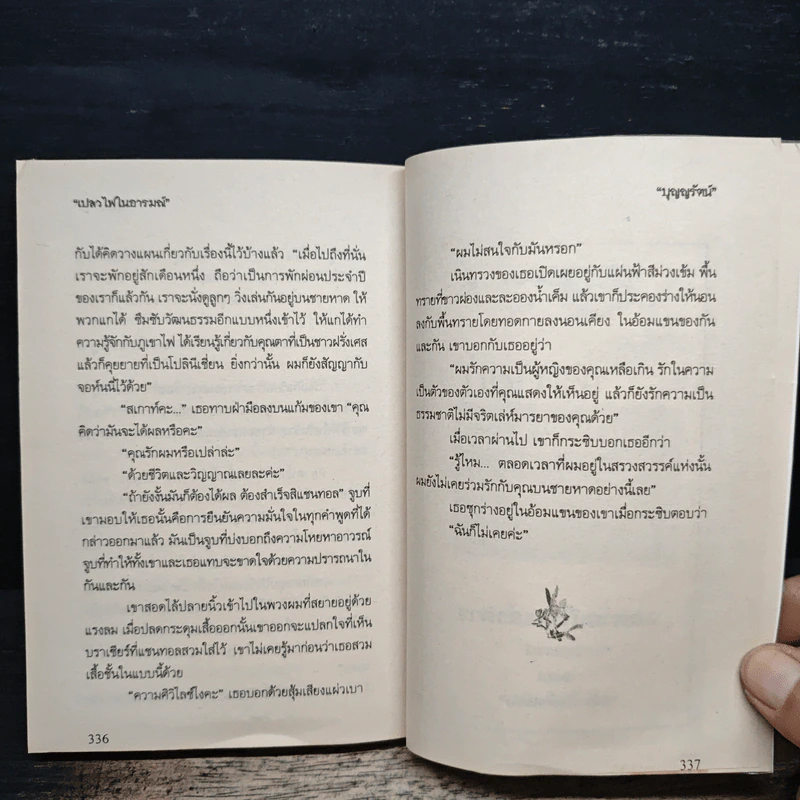 "เปลวไฟในอารมณ์"
กับได้คิดวางแผนเกี่ยวกับเรื่องนี้ไว้บ้างแล้ว "เมื่อไปถึงที่นั่น
เราจะพักอยู่สักเดือนหนึ่ง ถือว่าเป็นการพักผ่อนประจำปี
ของเราก็แล้วกัน เราจะนั่งดูลูกๆ วิ่งเล่นกันอยู่บนชายหาด ให้
พวกแกได้ ซึมซับวัฒนธรรมอีกแบบหนึ่งเข้าไว้ ให้แกได้ทำ
ความรู้จักกับภูเขาไฟ ได้เรียนรู้เกี่ยวกับคุณตาที่เป็นชาวฝรั่งเศส
แล้วก็คุยยายที่เป็นโปลินีเซี่ยน ยิ่งกว่านั้น ผมก็ยังสัญญากับ
จอห์นนี่ไว้ด้วย"
"สเกาท์คะ..." เธอทาบฝ่ามือลงบนแก้มของเขา "คุณ
คิดว่ามันจะได้ผลหรือคะ"
"คุณรักผมหรือเปล่าล่ะ"
"ด้วยชีวิตและวิญญาณเลยละค่ะ"
"ถ้ายังงั้นมันก็ต้องได้ผล ต้องสำเร็จสิแชนทอล" จูบที่
เขามอบให้เธอนั้นคือการยืนยันความมั่นใจในทุกคำพูดที่ได้
กล่าวออกมาแล้ว มันเป็นจูบที่บ่งบอกถึงความโหยหาอาวรณ์
จูบที่ทำให้ทั้งเขาและเธอแทบจะขาดใจด้วยความปรารถนาใน
กันและกัน
เขาสอดไล้ปลายนิ้วเข้าไปในพวงผมที่สยายอยู่ด้วย
แรงลม เมื่อปลดกระดุมเสื้อออกนั้นเขาออกจะแปลกใจที่เห็น
บราเซียร์ที่แชนทอลสวมใส่ไว้ เขาไม่เคยรู้มาก่อนว่าเธอสวม
เสื้อชั้นในแบบนี้ด้วย
"ความศิวิไลซ์ไงคะ" เธอบอกด้วยสุ้มเสียงแผ่วเบา
336
"บุญญรัตน์"
"ผมไม่สนใจกับมันหรอก"
เนินทรวงของเธอเปิดเผยอยู่กับแผ่นฟ้าสีม่วงเข้ม พื้น
ทรายที่ขาวผ่องและละอองน้ำเค็ม แล้วเขาก็ประคองร่างให้นอน
ลงกับพื้นทรายโดยทอดกายลงนอนเคียง ในอ้อมแขนของกัน
และกัน เขาบอกกับเธออยู่ว่า
"ผมรักความเป็นผู้หญิงของคุณเหลือเกิน รักในความ
เป็นตัวของตัวเองที่คุณแสดงให้เห็นอยู่ แล้วก็ยังรักความเป็น
ธรรมชาติไม่มีจริตเล่ห์มารยาของคุณด้วย"
เมื่อเวลาผ่านไป เขาก็กระซิบบอกเธออีกว่า
"รู้ไหม... ตลอดเวลาที่ผมอยู่ในสรวงสวรรค์แห่งนั้น
ผมยังไม่เคยร่วมรักกับคุณบนชายหาดอย่างนี้เลย"
เธอซุกร่างอยู่ในอ้อมแขนของเขาเมื่อกระซิบตอบว่า
"ฉันก็ไม่เคยค่ะ"
337